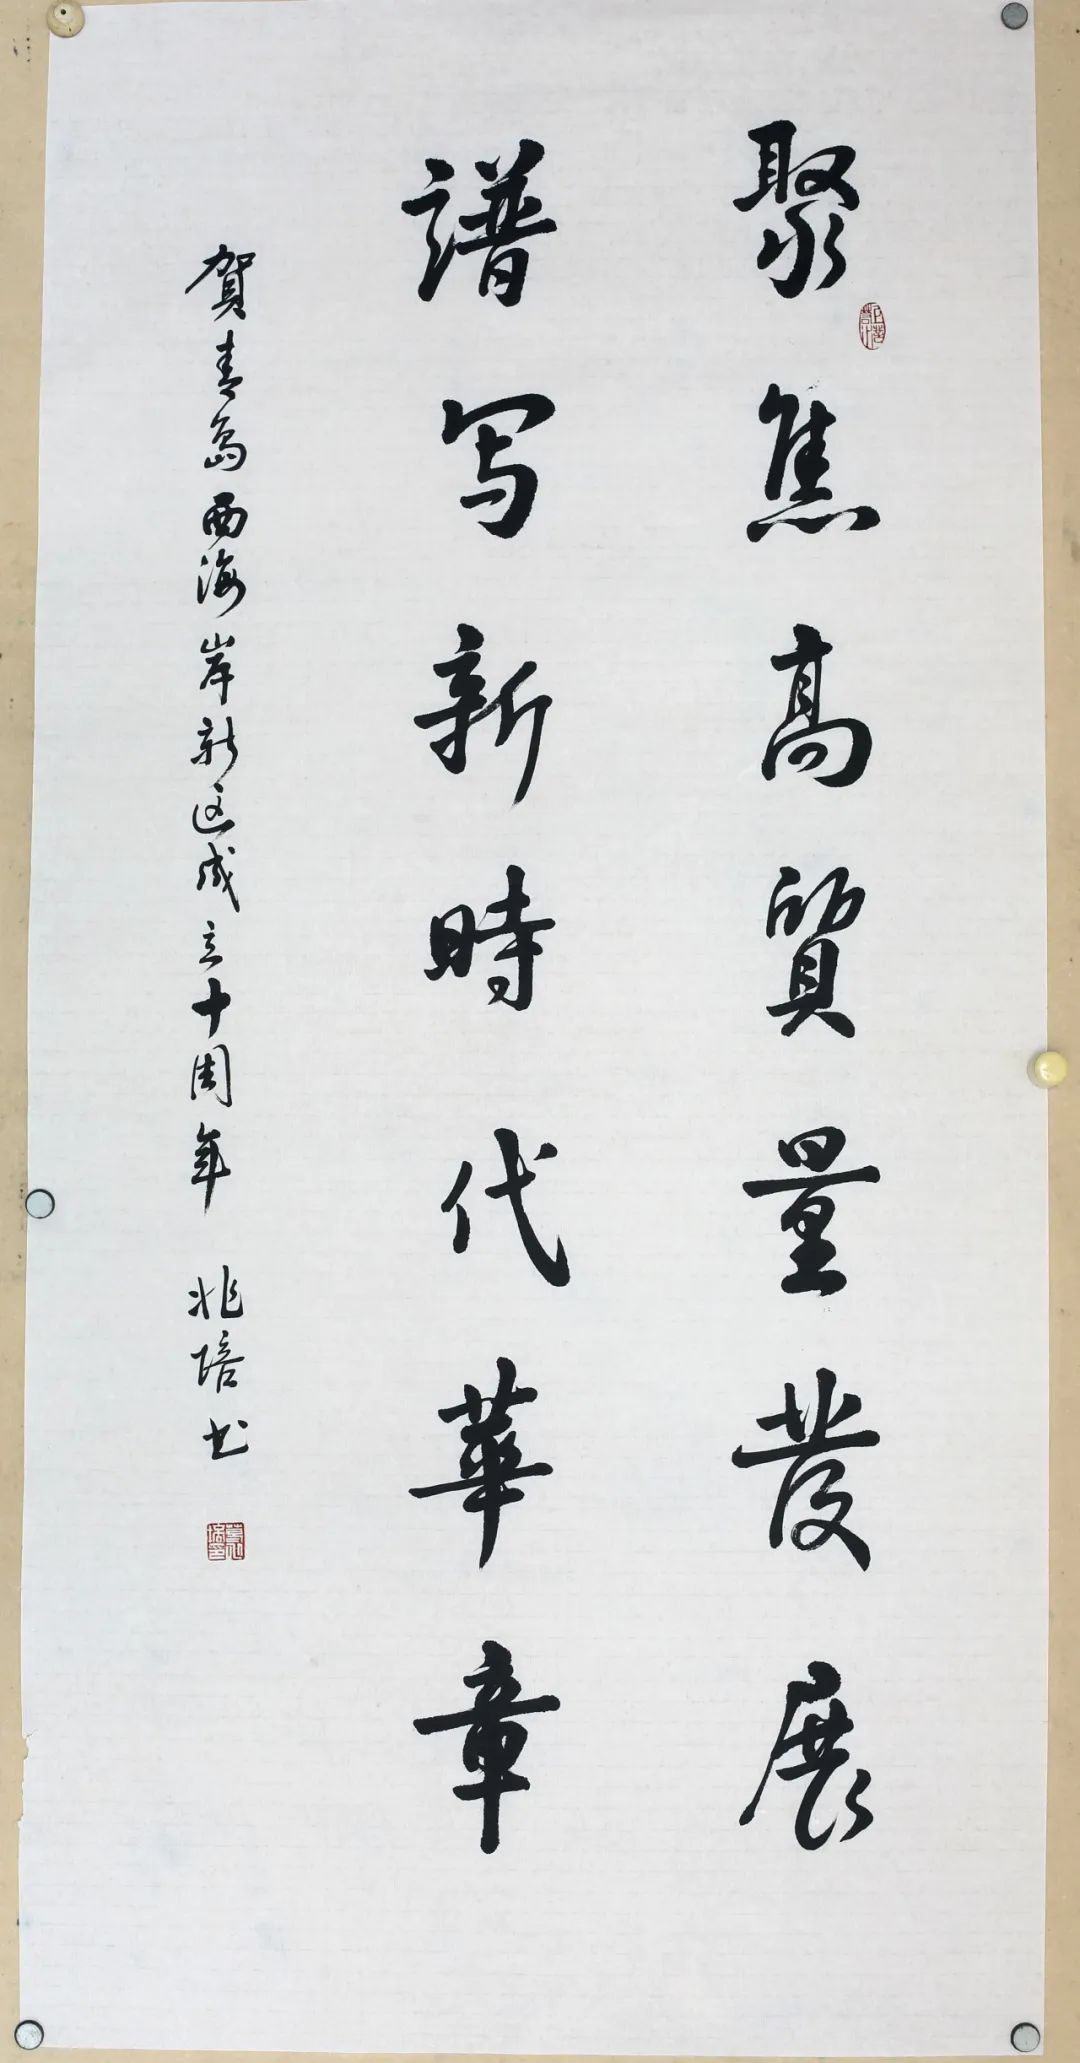 聚焦高質量發展
譜写新時代華章
賀青島西海岸新区成立十周年 兆培书